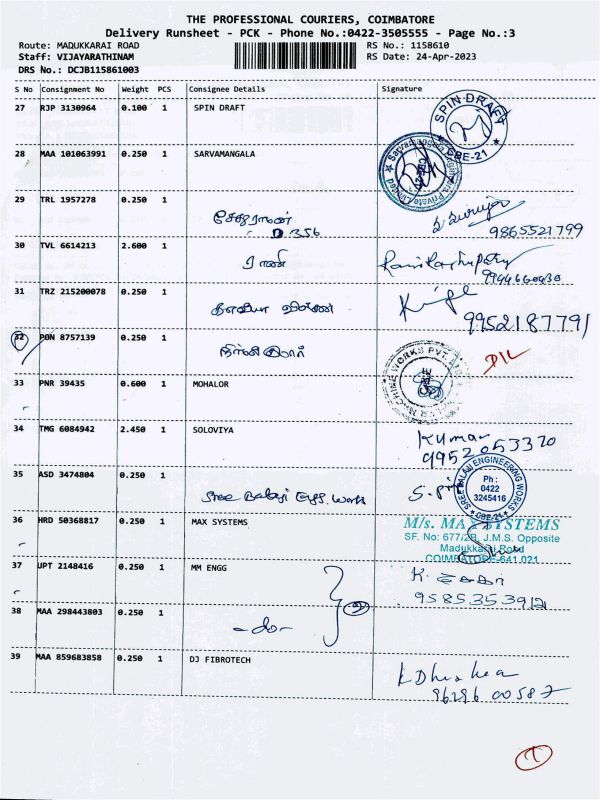 THE PROFESSIONAL COURIERS, COIMBATORE
Delivery Runsheet - PCK - Phone No.:0422-3505555 - Page No.:3
Route: MADUKKARAI ROAD RS No.: 1158610
Staff: VIJAYARATHINAM RS Date: 24-Apr-2023
DRS No.: DCJB115861003
S No Consignment No Weight PCS Consignee Details Signature
27 RJP 3130964 0.100 1 SPIN DRAFT
SPIN DRAFT CBE-21
28 MAA 101063991 0.250 1 SARVAMANGALA
29 TRL 1957278 0.250 1
சேதுராமன்
D 356
9865521799
30 TVL 6614213 2.600 1 ராணி
9944660430
31 TRZ 215200078 0.250 1
9952187791
32 PON 8757139 0.250 1
33 PNR 39435 0.600 1 MOHALOR
34 TMG 6084942 2.450 1 SOLOVIYA Kumar
9952053370
35 ASD 3474804 0.250 1 Sree Balaji Egg. Works
SREE BALAJI ENGINEERING WORKS Ph: 0422 3245416 CBE-21
36 HRD 50368817 0.250 1 MAX SYSTEMS M/s. MAX SYSTEMS
SF. No: 677/2B, J.M.S. Opposite
Madukkarai Road
COIMBATORE-641 021
37 UPT 2148416 0.250 1 MM ENGG
9585353912
38 MAA 298443803 0.250 1 -do-
39 MAA 859683858 0.250 1 DJ FIBROTECH
96296 00587